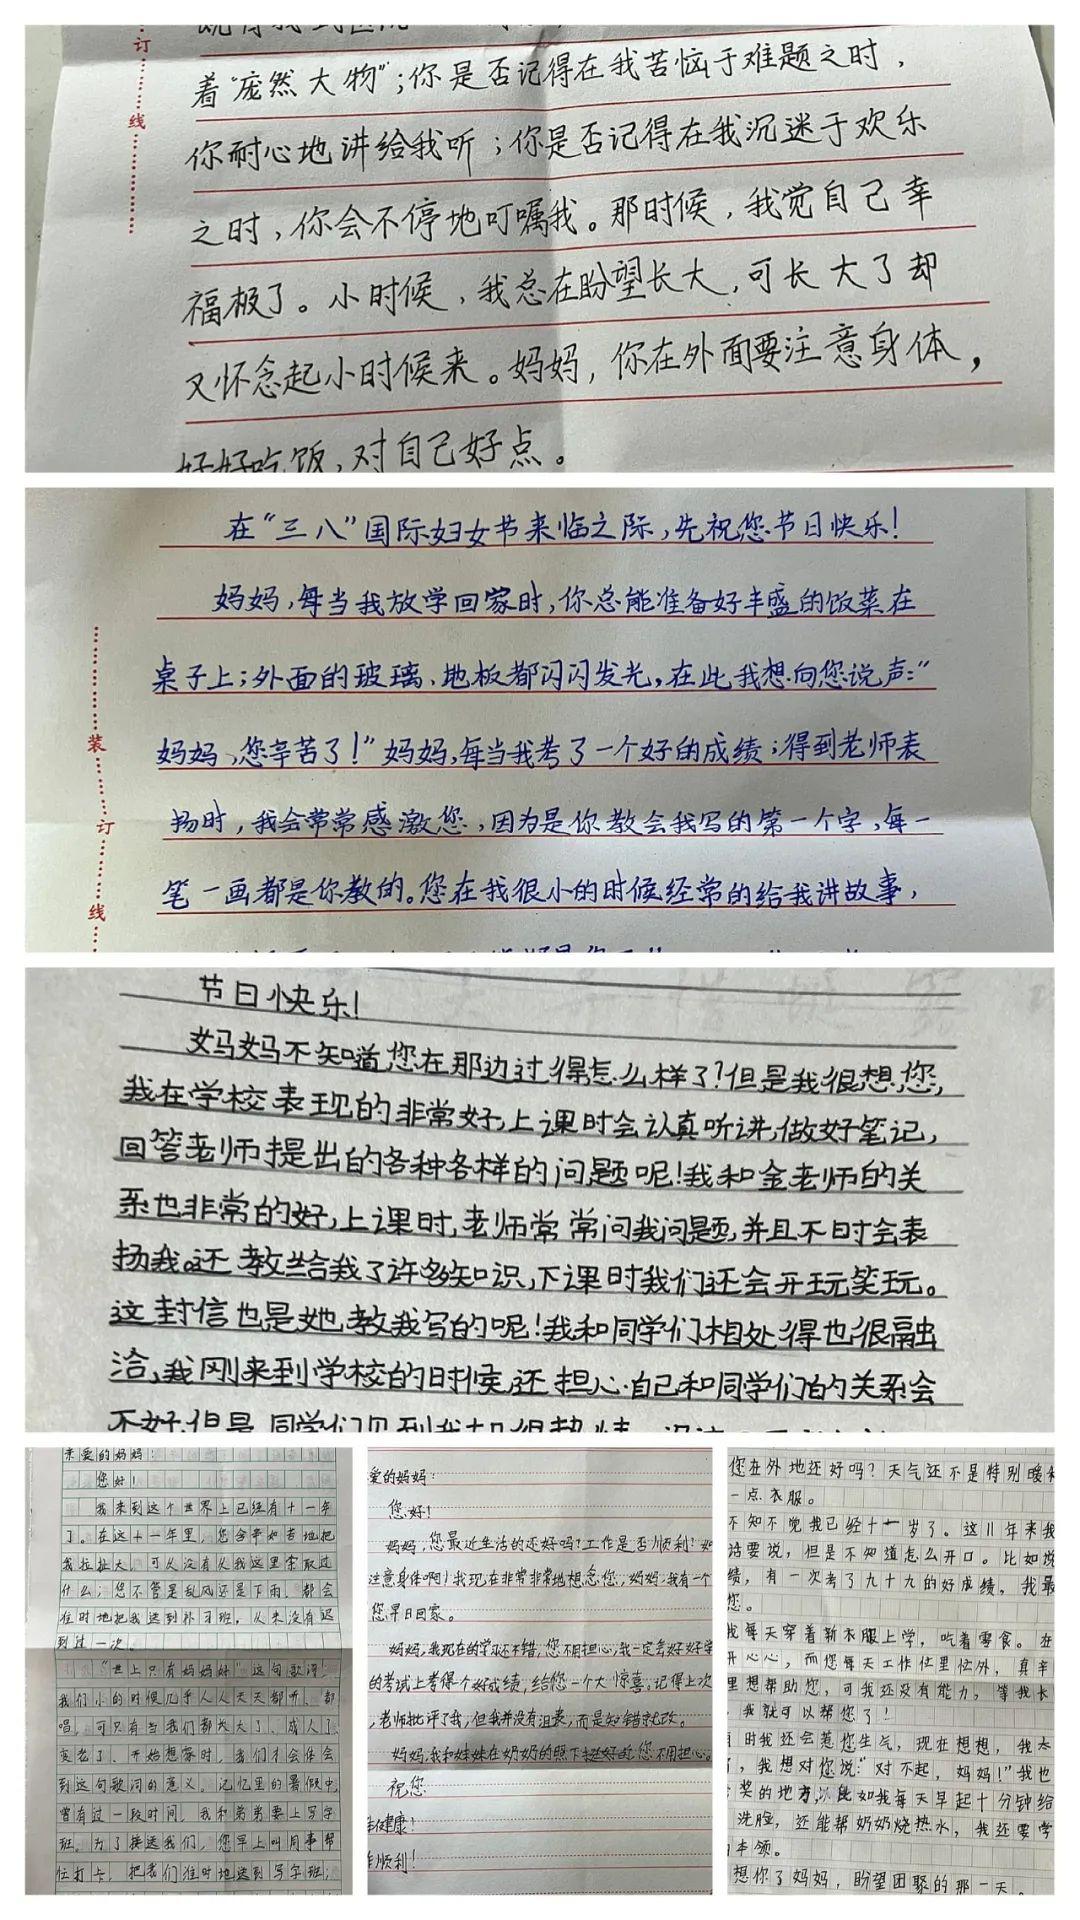 订
线
着“庞然大物”；你是否记得在我苦恼于难题之时，
你耐心地讲给我听；你是否记得在我沉迷于欢乐
之时，你会不停地叮嘱我。那时候，我觉自己幸
福极了。小时候，我总在盼望长大，可长大了却
又怀念起小时候来。妈妈，你在外面要注意身体，
好好吃饭，对自己好点。
在“三八”国际妇女节来临之际，先祝您节日快乐！
妈妈，每当我放学回家时，你总能准备好丰盛的饭菜在
桌子上；外面的玻璃、地板都闪闪发光，在此我想向您说声：“
妈妈、您辛苦了！”妈妈，每当我考了一个好的成绩；得到老师表
扬时，我会常常感激您，因为是你教会我写的第一个字，每一
笔一画都是你教的。您在我很小的时候经常的给我讲故事，
装
订
线
节日快乐！
妈妈不知道您在那边过得怎么样了？但是我很想您，
我在学校表现的非常好，上课时会认真听讲，做好笔记，
回答老师提出的各种各样的问题呢！我和金老师的关
系也非常的好，上课时，老师常常问我问题，并且不时会表
扬我。还教给我了许多知识，下课时我们还会开玩笑玩。
这封信也是她教我写的呢！我和同学们相处得也很融
洽，我刚来到学校的时候，还担心自己和同学们的关系会
不好，但是同学们见到我却很热情
亲爱的妈妈：
您好！
我来到这个世界上已经有十一年
了。在这十一年里，您含辛如苦地把
我拉扯大，可从没有从我这里索取过
什么；您不管是乱风还是下雨，都会
准时地把我送到补习班，从来没有迟
到过一次。
“世上只有妈妈好”这句歌词！
我们小的时候几乎人人天天都听、都
唱，可只有当我们都长大了、成人了、
变老了、开始想家时，我们才会体会
到这句歌词的意义。记忆里的暑假中，
曾有过一段时间，我和弟弟要上写字
班。为了接送我们，您早上叫同事帮
忙打卡，把我们准时地送到写字班；
爱的妈妈：
您好！
妈妈，您最近生活的还好吗？工作是否顺利？
注意身体啊！我现在非常非常地想念您，妈妈，我有一个
您早日回家。
妈妈，我现在的学习还不错，您不用担心，我一定会好好学
的考试上考得个好成绩，给您一个大惊喜。记得上次
，老师批评了我，但我并没有沮丧，而是知错就改。
妈妈，我和妹妹在奶奶的照下挺好的，您不用担心。
祝您
健康！
顺利！
您在外地还好吗？天气还不是特别暖和
一点衣服。
不知不觉我已经十一岁了。这11年来我
话要说，但是不知道怎么开口。比如说
绩，有一次考了九十九的好成绩，我最
您。
我每天穿着新衣服上学，吃着零食。在
开心心，而您每天工作忙里忙外，真辛
里想帮助您，可我还没有能力，等我长
，我就可以帮您了！
时我还会惹您生气，现在想想，我太
了，我想对您说：“对不起，妈妈！”我也
奖的地方，比如我每天早起十分钟给
洗脸，还能帮奶奶烧热水，我还要学
本领。
想你了妈妈，盼望团聚的那一天。